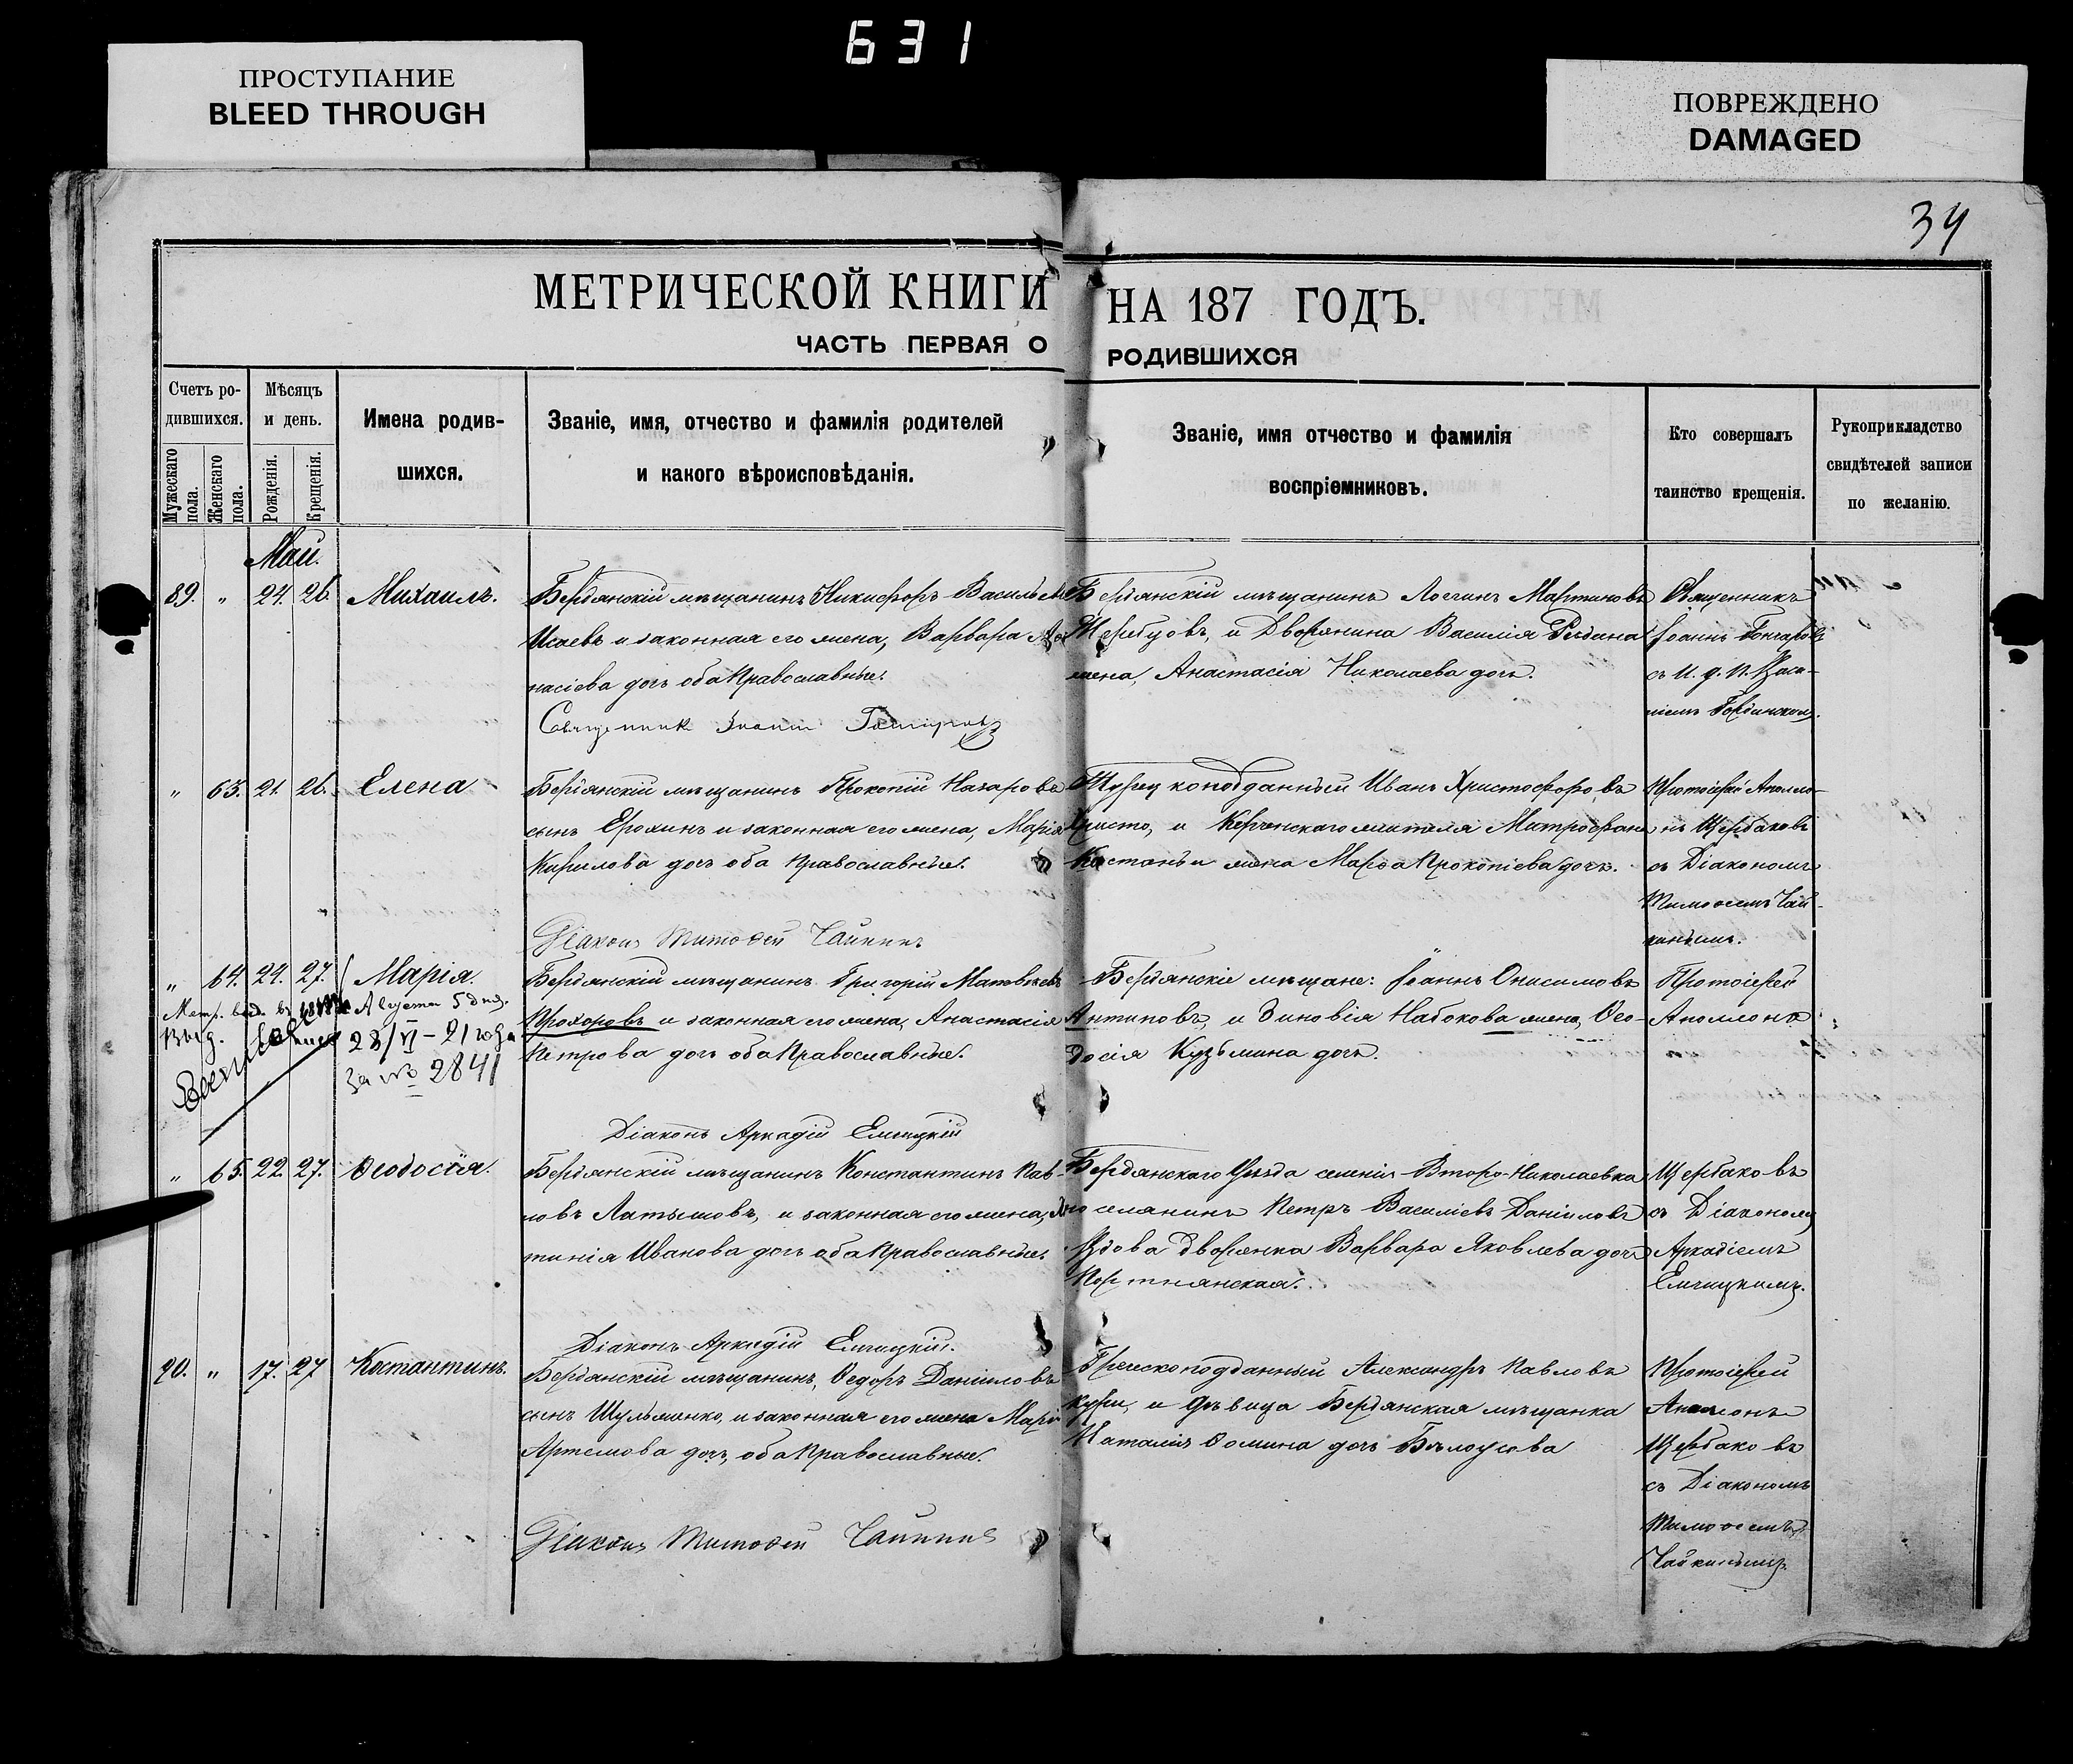 631
ПРОСТУПАНИЕ
BLEED THROUGH
ПОВРЕЖДЕНО
DAMAGED
34
МЕТРИЧЕСКОЙ КНИГИ НА 187 ГОДЪ.
ЧАСТЬ ПЕРВАЯ О РОДИВШИХСЯ
Счетъ ро-
дившихся.
Мужескаго пола.
Женскаго пола.
Мѣсяцъ
и день.
Рожденія.
Крещенія.
Имена родив-
шихся.
Званіе, имя, отчество и фамилія родителей
и какого вѣроисповѣданія.
Званіе, имя отчество и фамилія
воспріемниковъ.
Кто совершалъ
таинство крещенія.
Рукоприкладство
свидѣтелей записи
по желанію.
Май.
89. " 24. 26. Михаилъ.
Бердянскій мѣщанинъ Никифоръ Василье
Исаевъ и законная его жена, Варвара
насіева дочь оба Православные.
Священник Иоанн Гончаровъ
Бердянскій мѣщанинъ Логинъ Мартиновъ
Жеребцовъ, и Дворянина Василія
жена, Анастасія Николаева дочь.
Священникъ
Іоаннъ Гончаровъ
съ и. д. п.
" 63. 21. 26. Елена
Бердянскій мѣщанинъ Прокопій Назаровъ
сынъ Ерохинъ и законная его жена, Марія
Кирилова дочь оба Православные.
Діаконъ Тимофей Чайкинъ
Турецкоподданный Иванъ Христофоровъ
Христо, и Керченскаго жителя Митрофана
жена Марѳа Прокопіева дочь.
Протоіерей Аполло-
нъ Щербаковъ
съ Діакономъ
Тимоѳеемъ Чай-
кинымъ.
" 64. 24. 27. Марія.
Метр. выд. въ Августа 5 дня.
Выд.
28/VI – 21 года
за № 2841
Бердянскій мѣщанинъ Григорій Матвѣевъ
Прохоровъ и законная его жена, Анастасія
Петрова дочь оба Православные.
Діаконъ Аркадій Елчицкій
Бердянскіе мѣщане: Іоаннъ Онисимовъ
Антиповъ, и Зиновія Набокова жена, Ѳео-
досія Кузьмина дочь.
Протоіерей
Аполлонъ
" 65. 22. 27. Ѳеодосія.
Бердянскій мѣщанинъ Константинъ Пав-
ловъ Латышовъ, и законная его жена,
тинія Иванова дочь оба Православные.
Діаконъ Аркадій Елчицкій.
Бердянскаго Уѣзда селенія Второ-Николаевка
поселянинъ Петръ Василіевъ Даниловъ
Вдова дворянка Варвара Яковлева дочь
Портнянская.
Щербаковъ
съ Діакономъ
Аркадіемъ
Елчицкимъ.
90. " 17. 27 Костантинъ.
Бердянскій мѣщанинъ, Ѳедоръ Даниловъ
сынъ Шульженко, и законная его жена Марія
Артемова дочь, оба Православные.
Діаконъ Тимофей Чайкинъ
Греческоподданный Александръ Павловъ
Кури, и дѣвица Бердянская мѣщанка
Наталія Ѳомина дочь Бѣлоусова
Протоіерей
Аполлонъ
Щербаковъ
съ Діакономъ
Тимоѳеемъ
Чайкинымъ.